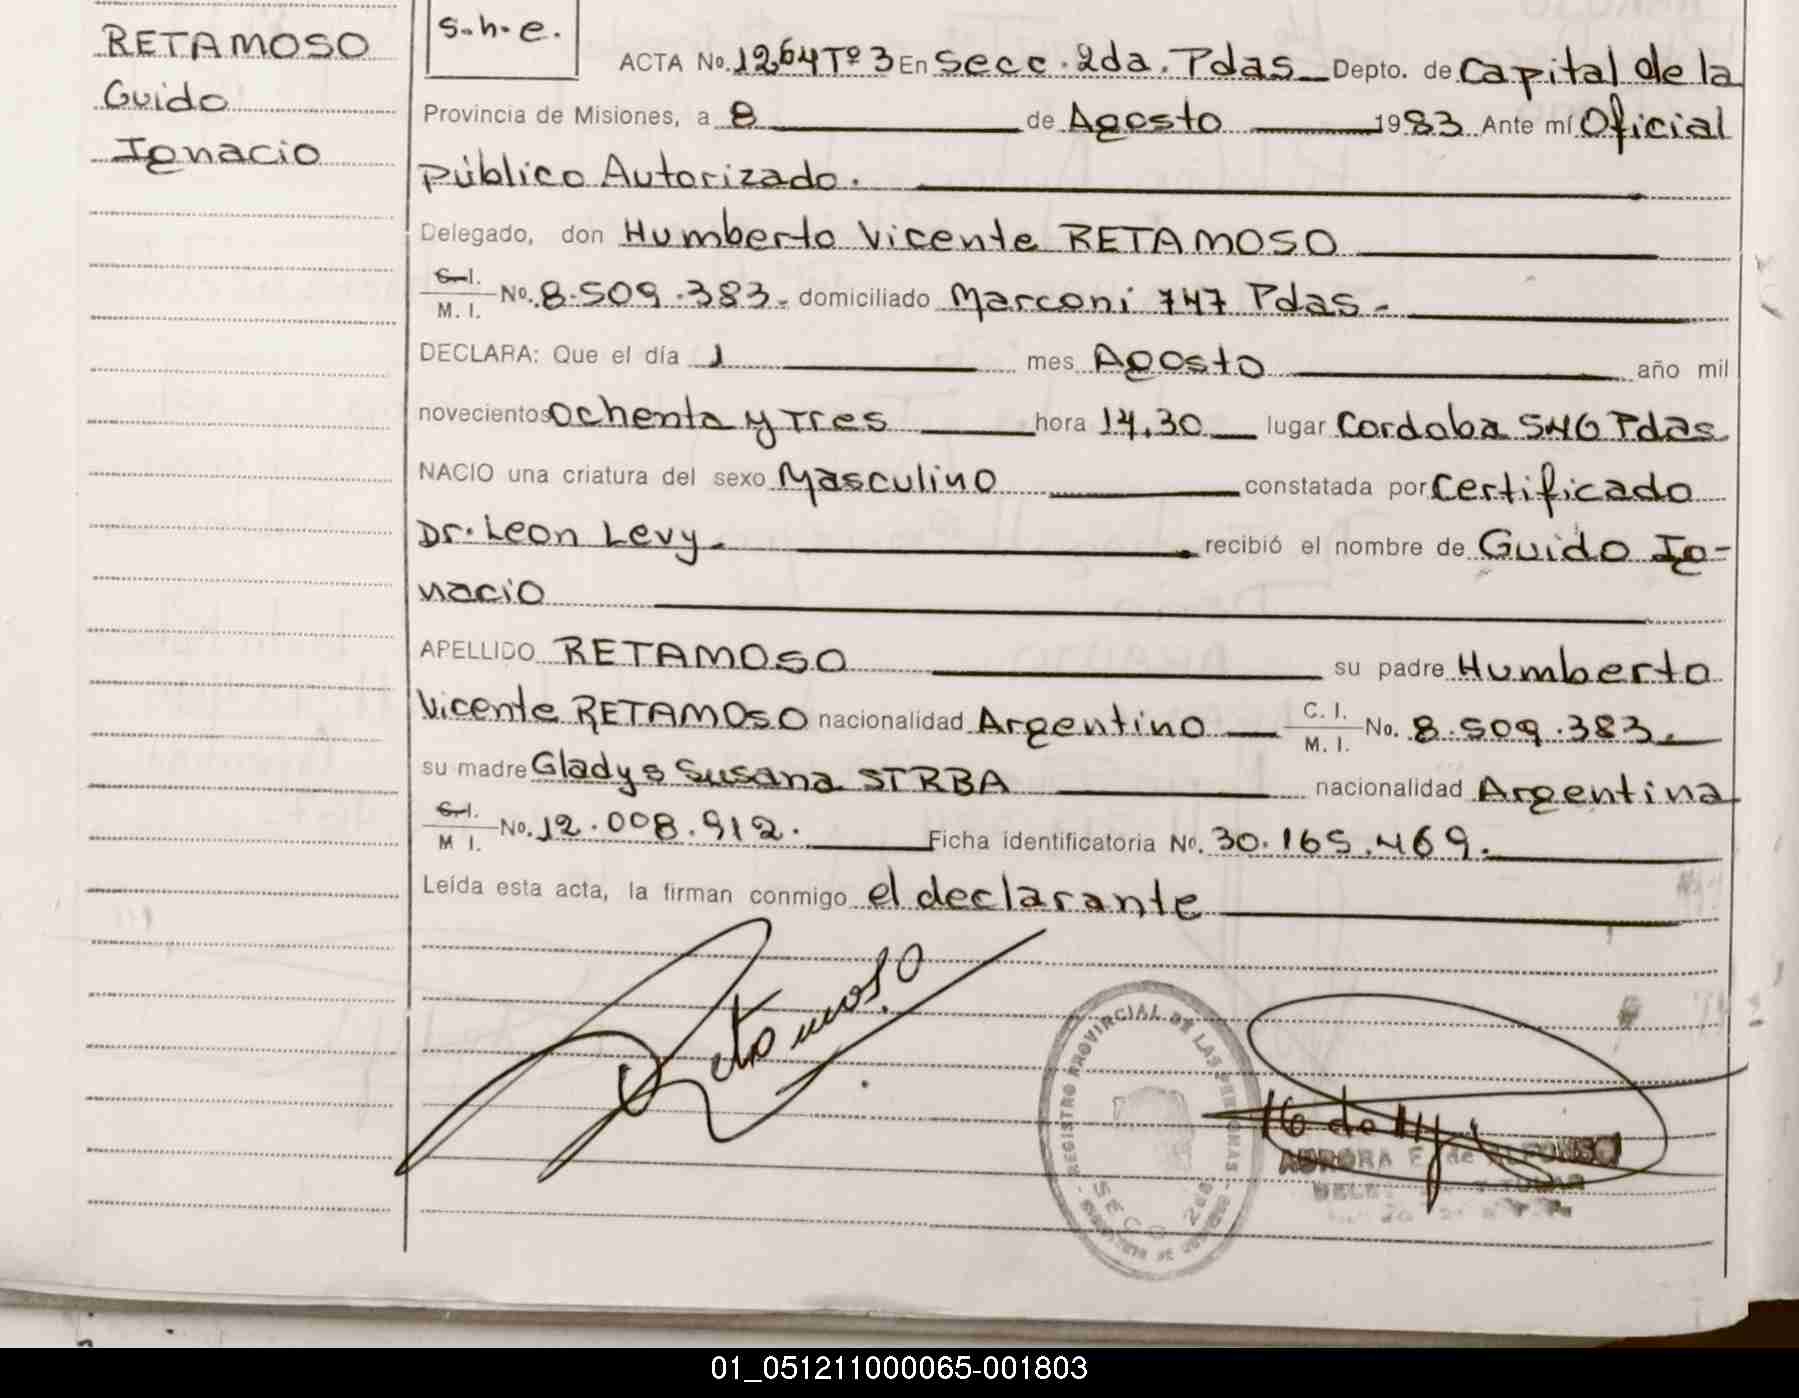 RETAMOSO
Guido
Ignacio
s.h.e.
ACTA No. 1264 Tº 3 En Secc. 2da. Pdas Depto. de Capital de la
Provincia de Misiones, a 8 de Agosto 1983 Ante mí Oficial
Público Autorizado.
Delegado, don Humberto Vicente RETAMOSO
C.I.
M. I. No. 8.509.383. domiciliado Marconi 747 Pdas.-
DECLARA: Que el día 1 mes Agosto año mil
novecientos Ochenta y Tres hora 14.30 lugar Cordoba 546 Pdas
NACIO una criatura del sexo Masculino constatada por Certificado
Dr. Leon Levy. recibió el nombre de Guido Ig-
nacio
APELLIDO RETAMOSO su padre Humberto
Vicente RETAMOSO nacionalidad Argentino C. I.
M. I. No. 8.509.383.
su madre Gladys Susana STRBA nacionalidad Argentina
C.I.
M I. No. 12.008.912. Ficha identificatoria No. 30.165.469.
Leída esta acta, la firman conmigo el declarante
Retamoso
REGISTRO PROVINCIAL DE LAS PERSONAS
SECC 2da
AURORA E. de ALFONSO
01_051211000065-001803